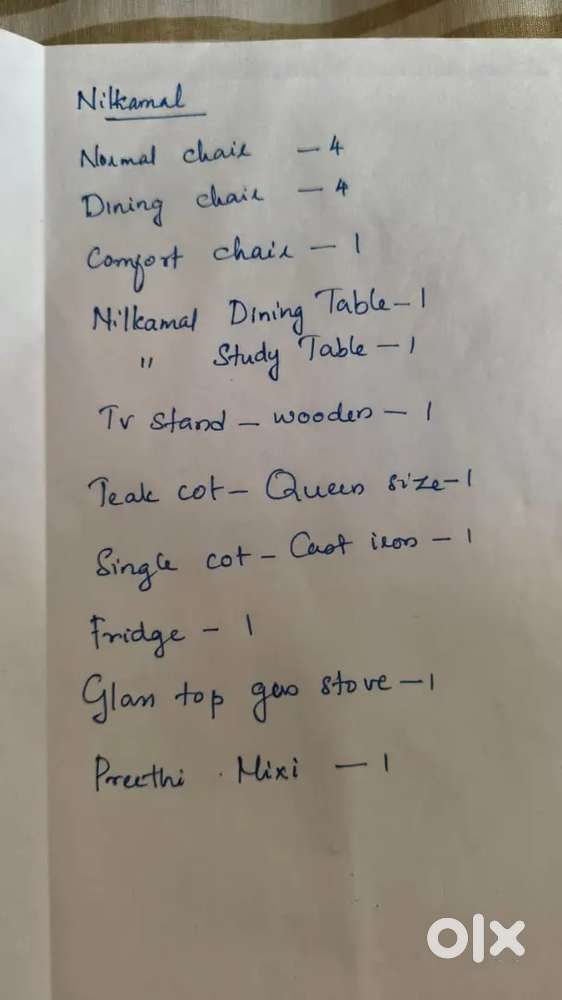 Nilkamal
Normal chair - 4
Dining chair - 4
Comfort chair - 1
Nilkamal Dining Table - 1
" Study Table - 1
Tv stand - wooden - 1
Teak cot - Queen size - 1
Single cot - Cast iron - 1
Fridge - 1
Glass top gas stove - 1
Preethi Mixi - 1
olx